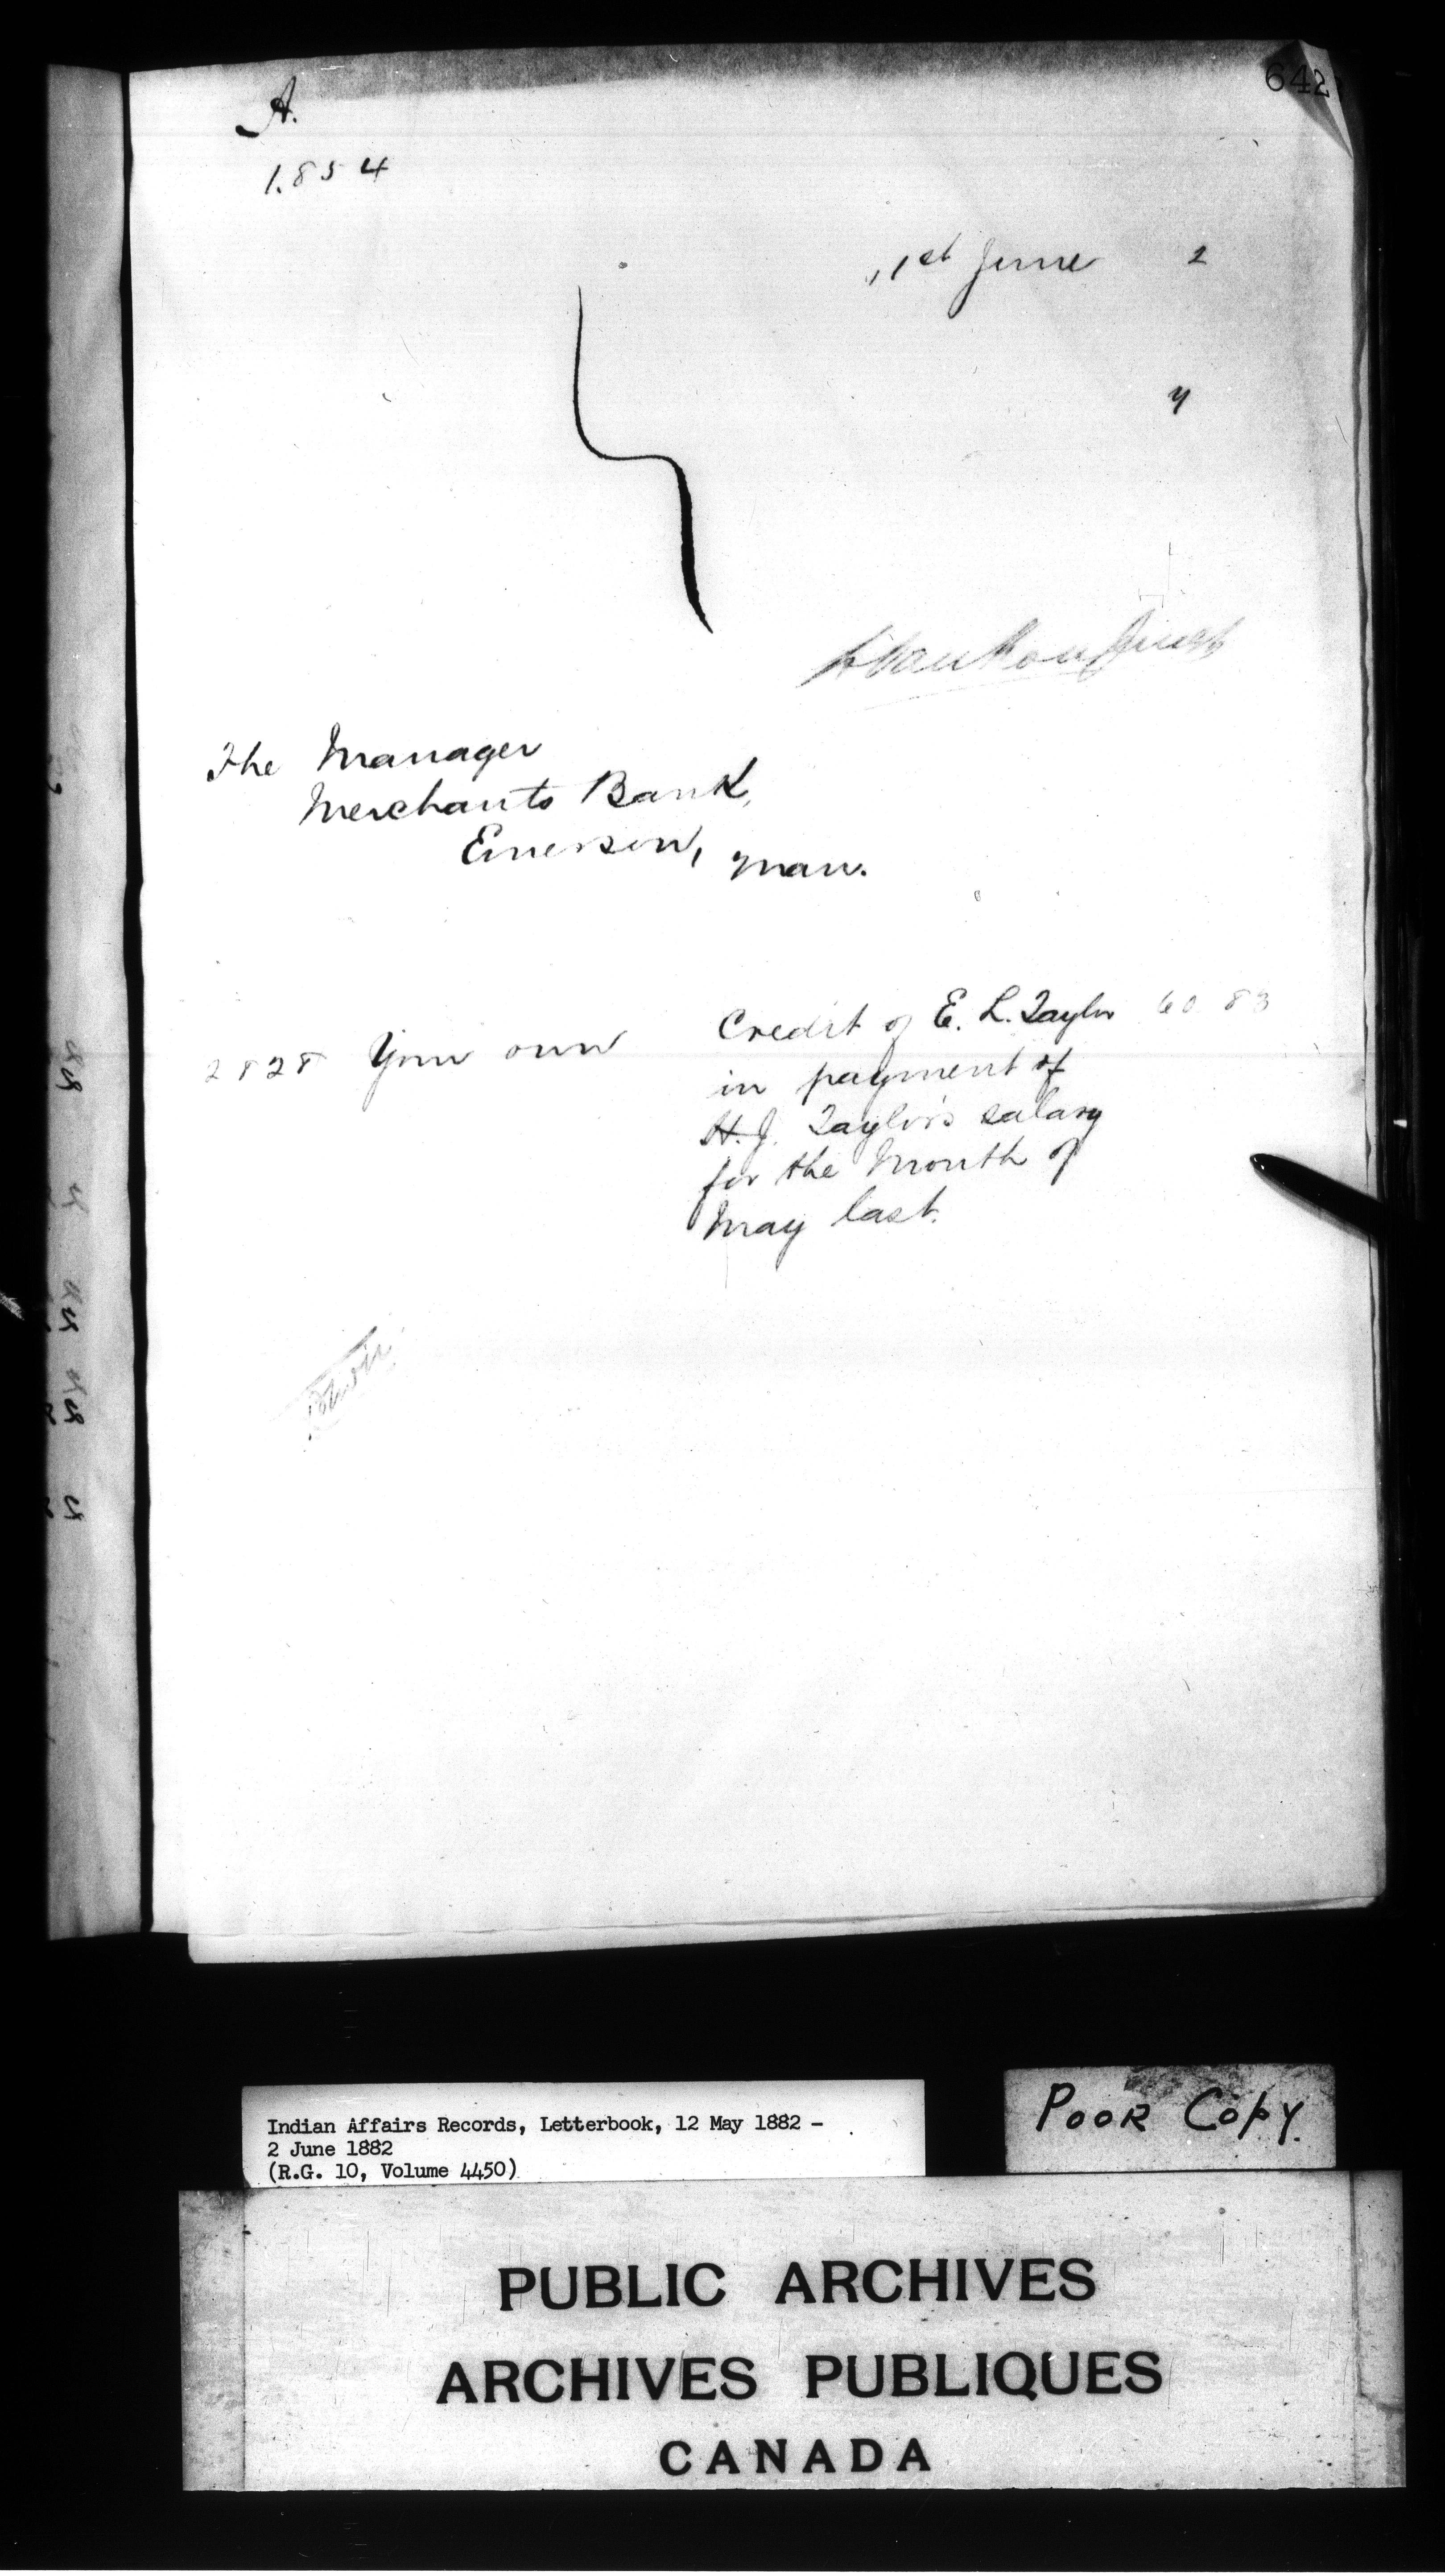 642
A.
1.854
1st June 2
y
L VanKoughnet
The Manager
Merchants Bank,
Emerson, Man.
2828 Your own Credit of E. L. Taylor 60 83
in payment of
H. J. Taylor's salary
for the Month of
May last.
Indian Affairs Records, Letterbook, 12 May 1882 -
2 June 1882
(R.G. 10, Volume 4450)
POOR COPY.
PUBLIC ARCHIVES
ARCHIVES PUBLIQUES
CANADA